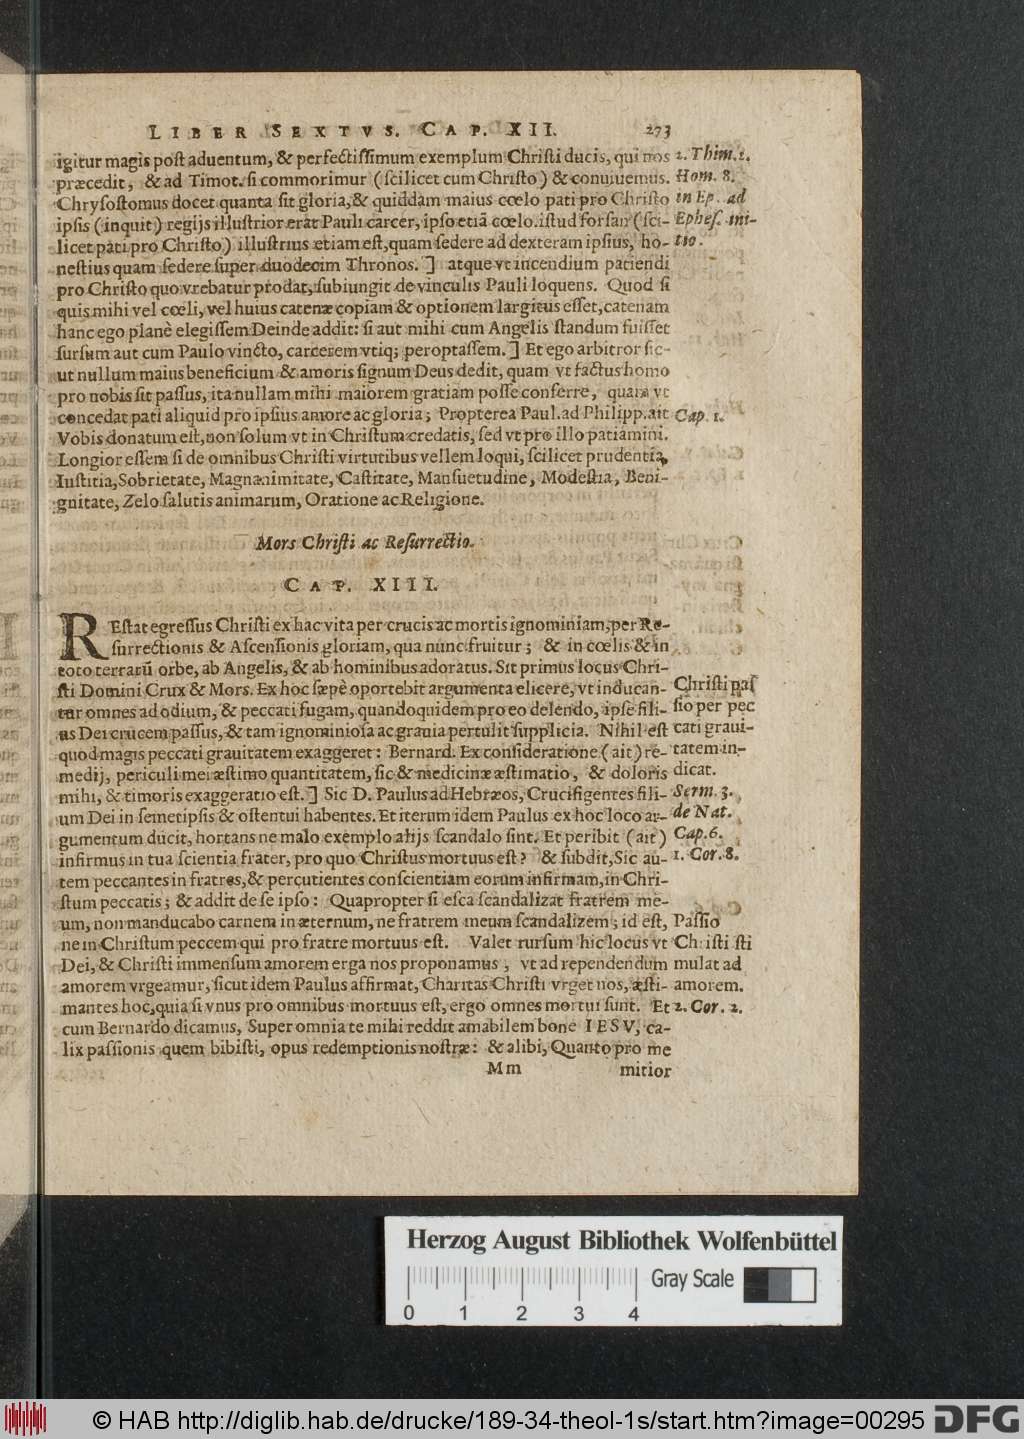 LIBER SEXTVS. CAP. XII. 273
igitur magis post aduentum, & perfectissimum exemplum Christi ducis, qui nos
præcedit, & ad Timot. si commorimur (scilicet cum Christo) & conuiuemus.
Chrysostomus docet quanta sit gloria, & quiddam maius cœlo pati pro Christo
ipsis (inquit) regijs illustrior erat Pauli carcer, ipso etiã cœlo. istud forsan (sci-
licet pati pro Christo) illustrius etiam est, quam sedere ad dexteram ipsius, ho-
nestius quam sedere super duodecim Thronos. ] atque vt incendium patiendi
pro Christo quo vrebatur prodat, subiungit de vinculis Pauli loquens. Quod si
quis mihi vel cœli, vel huius catenæ copiam & optionem largitus esset, catenam
hanc ego planè elegissem Deinde addit: si aut mihi cum Angelis standum fuisset
sursum aut cum Paulo vincto, carcerem vtiq; peroptassem. ] Et ego arbitror sic-
ut nullum maius beneficium & amoris signum Deus dedit, quam vt factus homo
pro nobis sit passus, ita nullam mihi maiorem gratiam posse conferre, quam vt
concedat pati aliquid pro ipsius amore ac gloria; Propterea Paul. ad Philipp. ait
Vobis donatum est, non solum vt in Christum credatis, sed vt pro illo patiamini.
Longior essem si de omnibus Christi virtutibus vellem loqui, scilicet prudentia,
Iustitia, Sobrietate, Magnanimitate, Castitate, Mansuetudine, Modestia, Beni-
gnitate, Zelo salutis animarum, Oratione ac Religione.
2. Thim. 2.
Hom. 8.
in Ep. ad
Ephes. ini-
tio.
Cap. 1.
Mors Christi ac Resurrectio.
CAP. XIII.
REstat egressus Christi ex hac vita per crucis ac mortis ignominiam, per Re-
surrectionis & Ascensionis gloriam, qua nunc fruitur; & in cœlis & in
toto terrarũ orbe, ab Angelis, & ab hominibus adoratus. Sit primus locus Chri-
sti Domini Crux & Mors. Ex hoc sæpè oportebit argumenta elicere, vt inducan-
tur omnes ad odium, & peccati fugam, quandoquidem pro eo delendo, ipse fili-
us Dei crucem passus, & tam ignominiosa ac grauia pertulit supplicia. Nihil est
quod magis peccati grauitatem exaggeret: Bernard. Ex consideratione (ait) re-
medij, periculi mei æstimo quantitatem, sic & medicinæ æstimatio, & doloris
mihi, & timoris exaggeratio est. ] Sic D. Paulus ad Hebræos, Crucifigentes fili-
um Dei in semetipsis & ostentui habentes. Et iterum idem Paulus ex hoc loco ar-
gumentum ducit, hortans ne malo exemplo alijs scandalo sint. Et peribit (ait)
infirmus in tua scientia frater, pro quo Christus mortuus est? & subdit, Sic au-
tem peccantes in fratres, & percutientes conscientiam eorum infirmam, in Chri-
stum peccatis; & addit de se ipso: Quapropter si esca scandalizat fratrem me-
um, non manducabo carnem in æternum, ne fratrem meum scandalizem; id est,
ne in Christum peccem qui pro fratre mortuus est. Valet rursum hic locus vt
Dei, & Christi immensum amorem erga nos proponamus, vt ad rependendum
amorem vrgeamur, sicut idem Paulus affirmat, Charitas Christi vrget nos, æsti-
mantes hoc, quia si vnus pro omnibus mortuus est, ergo omnes mortui sunt. Et
cum Bernardo dicamus, Super omnia te mihi reddit amabilem bone IESV, ca-
lix passionis quem bibisti, opus redemptionis nostræ: & alibi, Quanto pro me
Mm mitior
Christi pas
sio per pec
cati graui-
tatem in-
dicat.
Serm. 3.
de Nat.
Cap. 6.
1. Cor. 8.
Passio
Christi sti
mulat ad
amorem.
2. Cor. 2.
Herzog August Bibliothek Wolfenbüttel
Gray Scale
0 1 2 3 4
© HAB http://diglib.hab.de/drucke/189-34-theol-1s/start.htm?image=00295 DFG